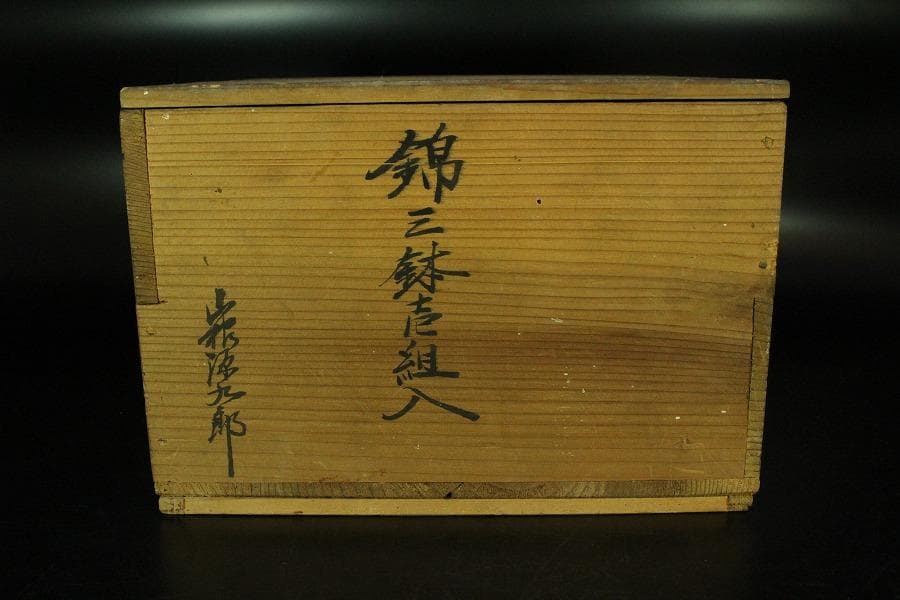 錦三鉢壱組入
山根源九郎